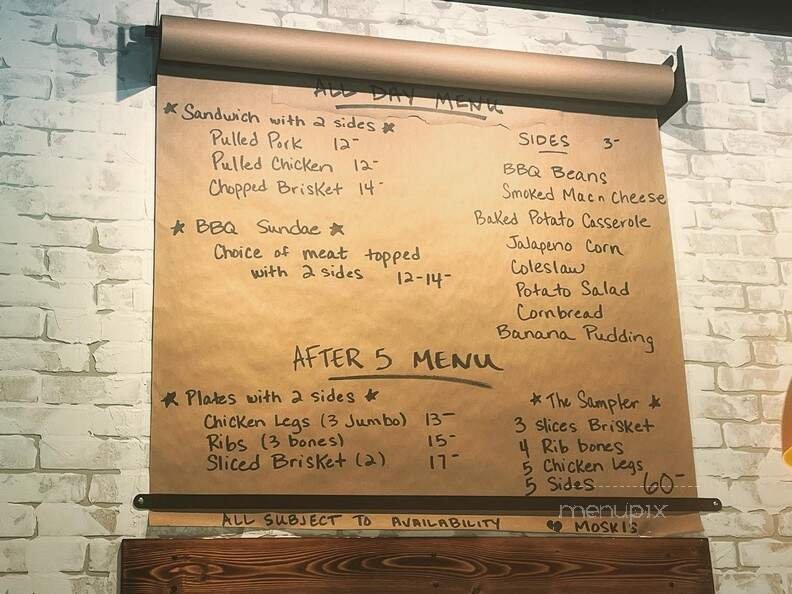 ALL DAY MENU
★ Sandwich with 2 sides ★
Pulled Pork 12-
Pulled Chicken 12-
Chopped Brisket 14-
★ BBQ Sundae ★
Choice of meat topped
with 2 sides 12-14-
SIDES 3-
BBQ Beans
Smoked Mac n Cheese
Baked Potato Casserole
Jalapeno Corn
Coleslaw
Potato Salad
Cornbread
Banana Pudding
AFTER 5 MENU
★ Plates with 2 sides ★
Chicken Legs (3 Jumbo) 13-
Ribs (3 bones) 15-
Sliced Brisket (2) 17-
★ The Sampler ★
3 slices Brisket
4 Rib bones
5 Chicken Legs
5 Sides 60-
menupix
ALL SUBJECT TO AVAILABILITY ♥ MOSKIS